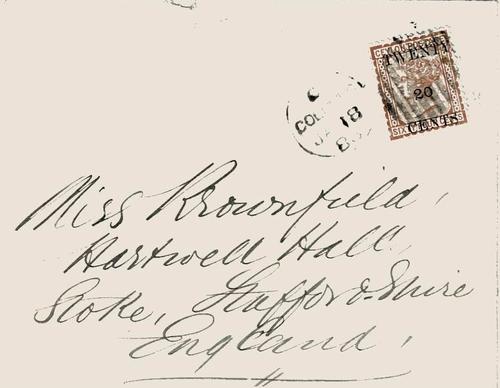 CEYLON
TWENTY
20
CENTS
SIX
COLOMBO
JA 18
Miss Brownfield,
Hartwell Hall
Stoke, Stafford-Shire
England,